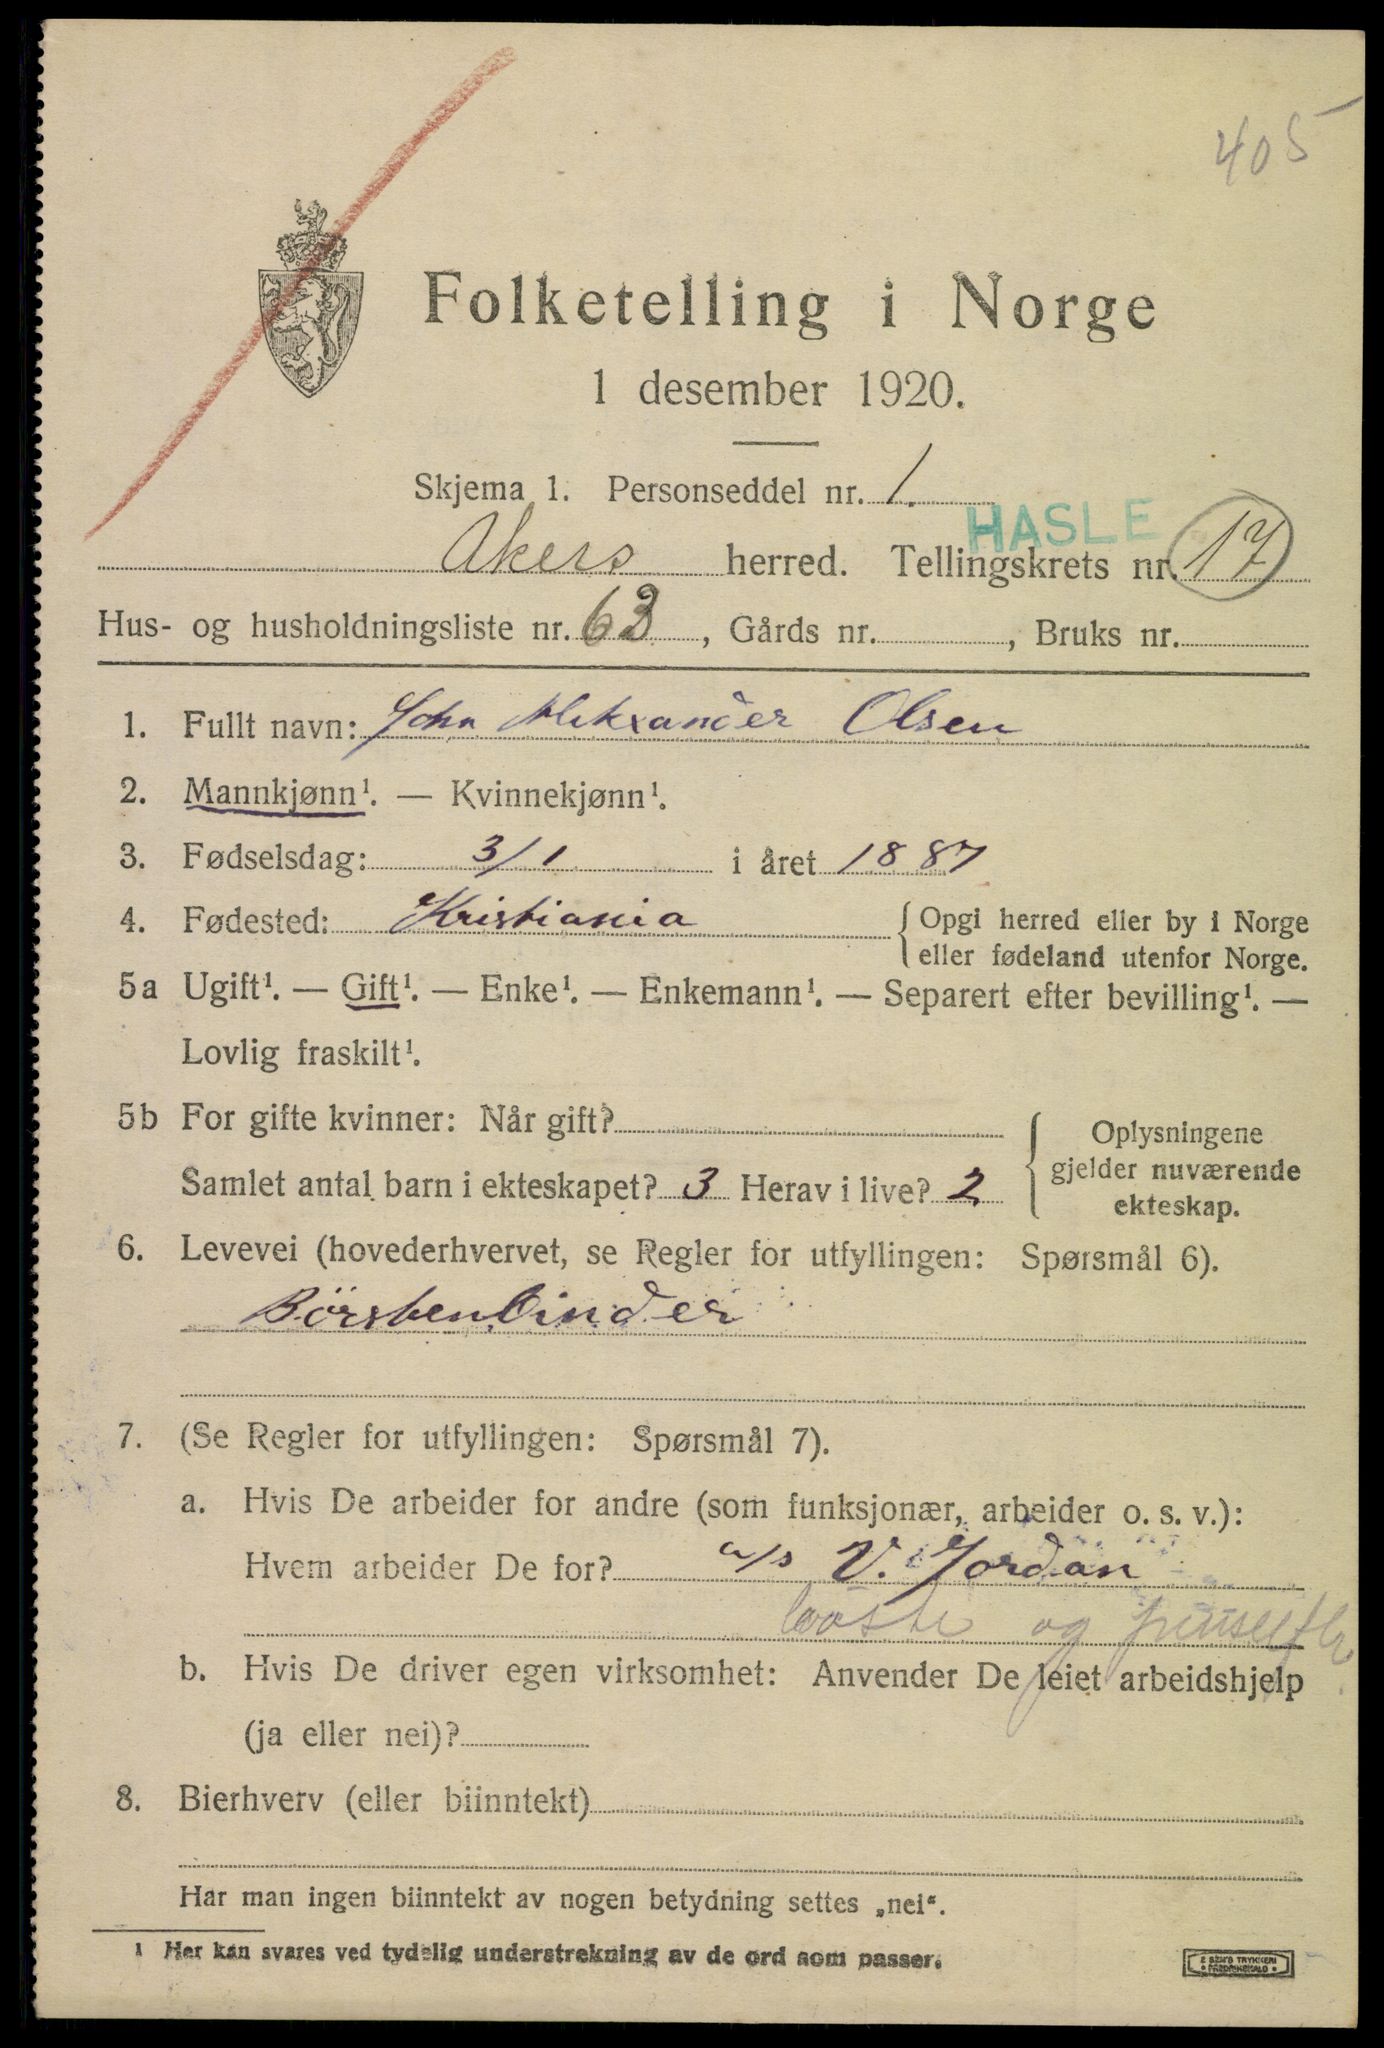 405
Folketelling i Norge
1 desember 1920.
Skjema 1. Personseddel nr. 1.
HASLE
Akers herred. Tellingskrets nr. 17
Hus- og husholdningsliste nr. 63, Gårds nr. , Bruks nr.
1. Fullt navn: John Aleksander Olsen
2. Mannkjønn¹. — Kvinnekjønn¹.
3. Fødselsdag: 3/1 i året 1887
4. Fødested: Kristiania { Opgi herred eller by i Norge
eller fødeland utenfor Norge.
5a Ugift¹. — Gift¹. — Enke¹. — Enkemann¹. — Separert efter bevilling¹. —
Lovlig fraskilt¹.
5b For gifte kvinner: Når gift?
Samlet antal barn i ekteskapet? 3 Herav i live? 2
{ Oplysningene
gjelder nuværende
ekteskap.
6. Levevei (hovederhvervet, se Regler for utfyllingen: Spørsmål 6).
Börstenbinder
7. (Se Regler for utfyllingen: Spørsmål 7).
a. Hvis De arbeider for andre (som funksjonær, arbeider o. s. v.):
Hvem arbeider De for? a/s V. Jordan
og
b. Hvis De driver egen virksomhet: Anvender De leiet arbeidshjelp
(ja eller nei)?
8. Bierhverv (eller biinntekt)
Har man ingen biinntekt av nogen betydning settes „nei“.
1 Her kan svares ved tydelig understrekning av de ord som passer.
TRYKKERI
FREDRIKSHALD